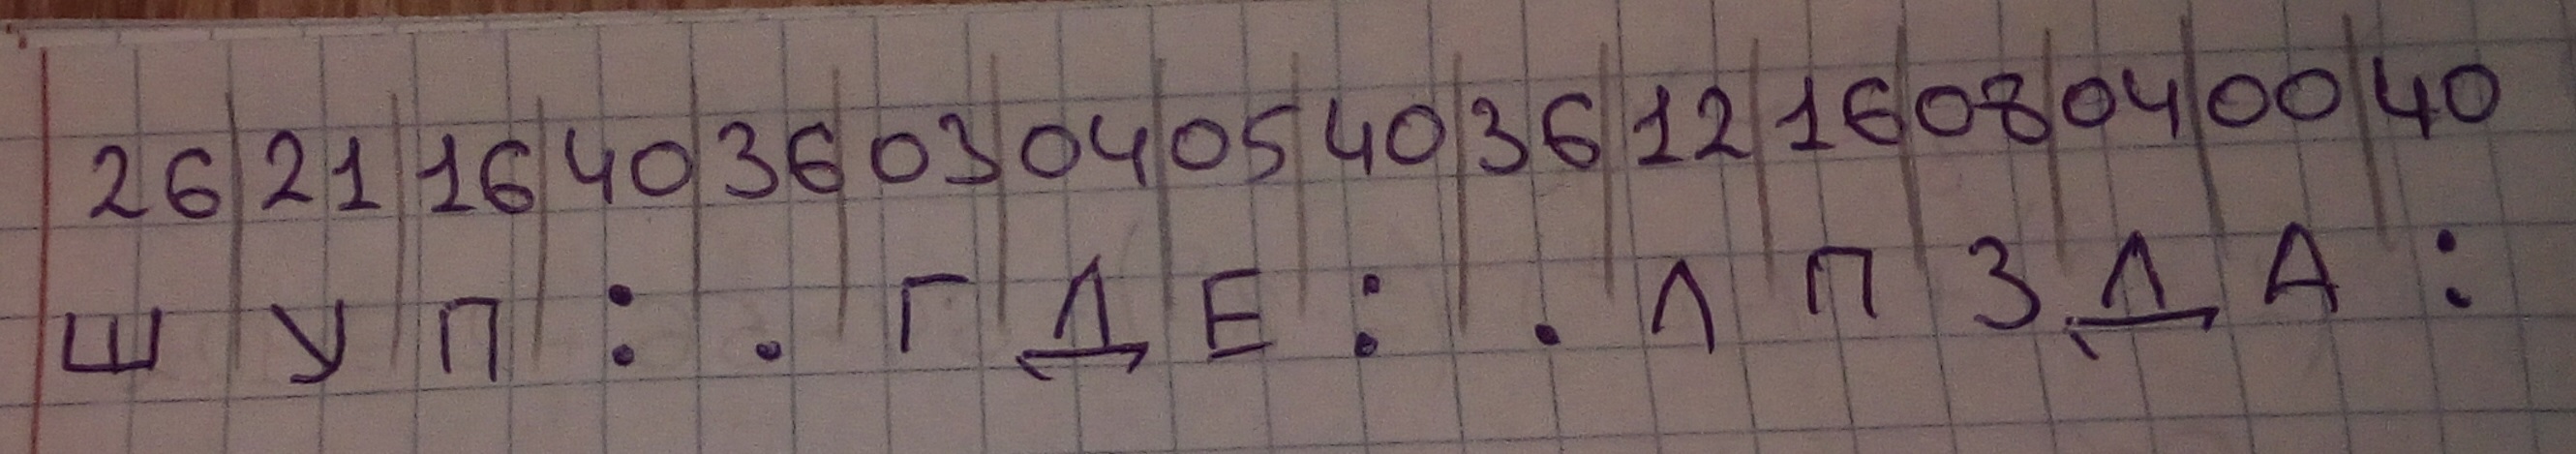 26|21|16|40|36|03|04|05|40|36|12|16|08|04|00|40
Ш У П : . Г Д Е : . Л П З Д А :